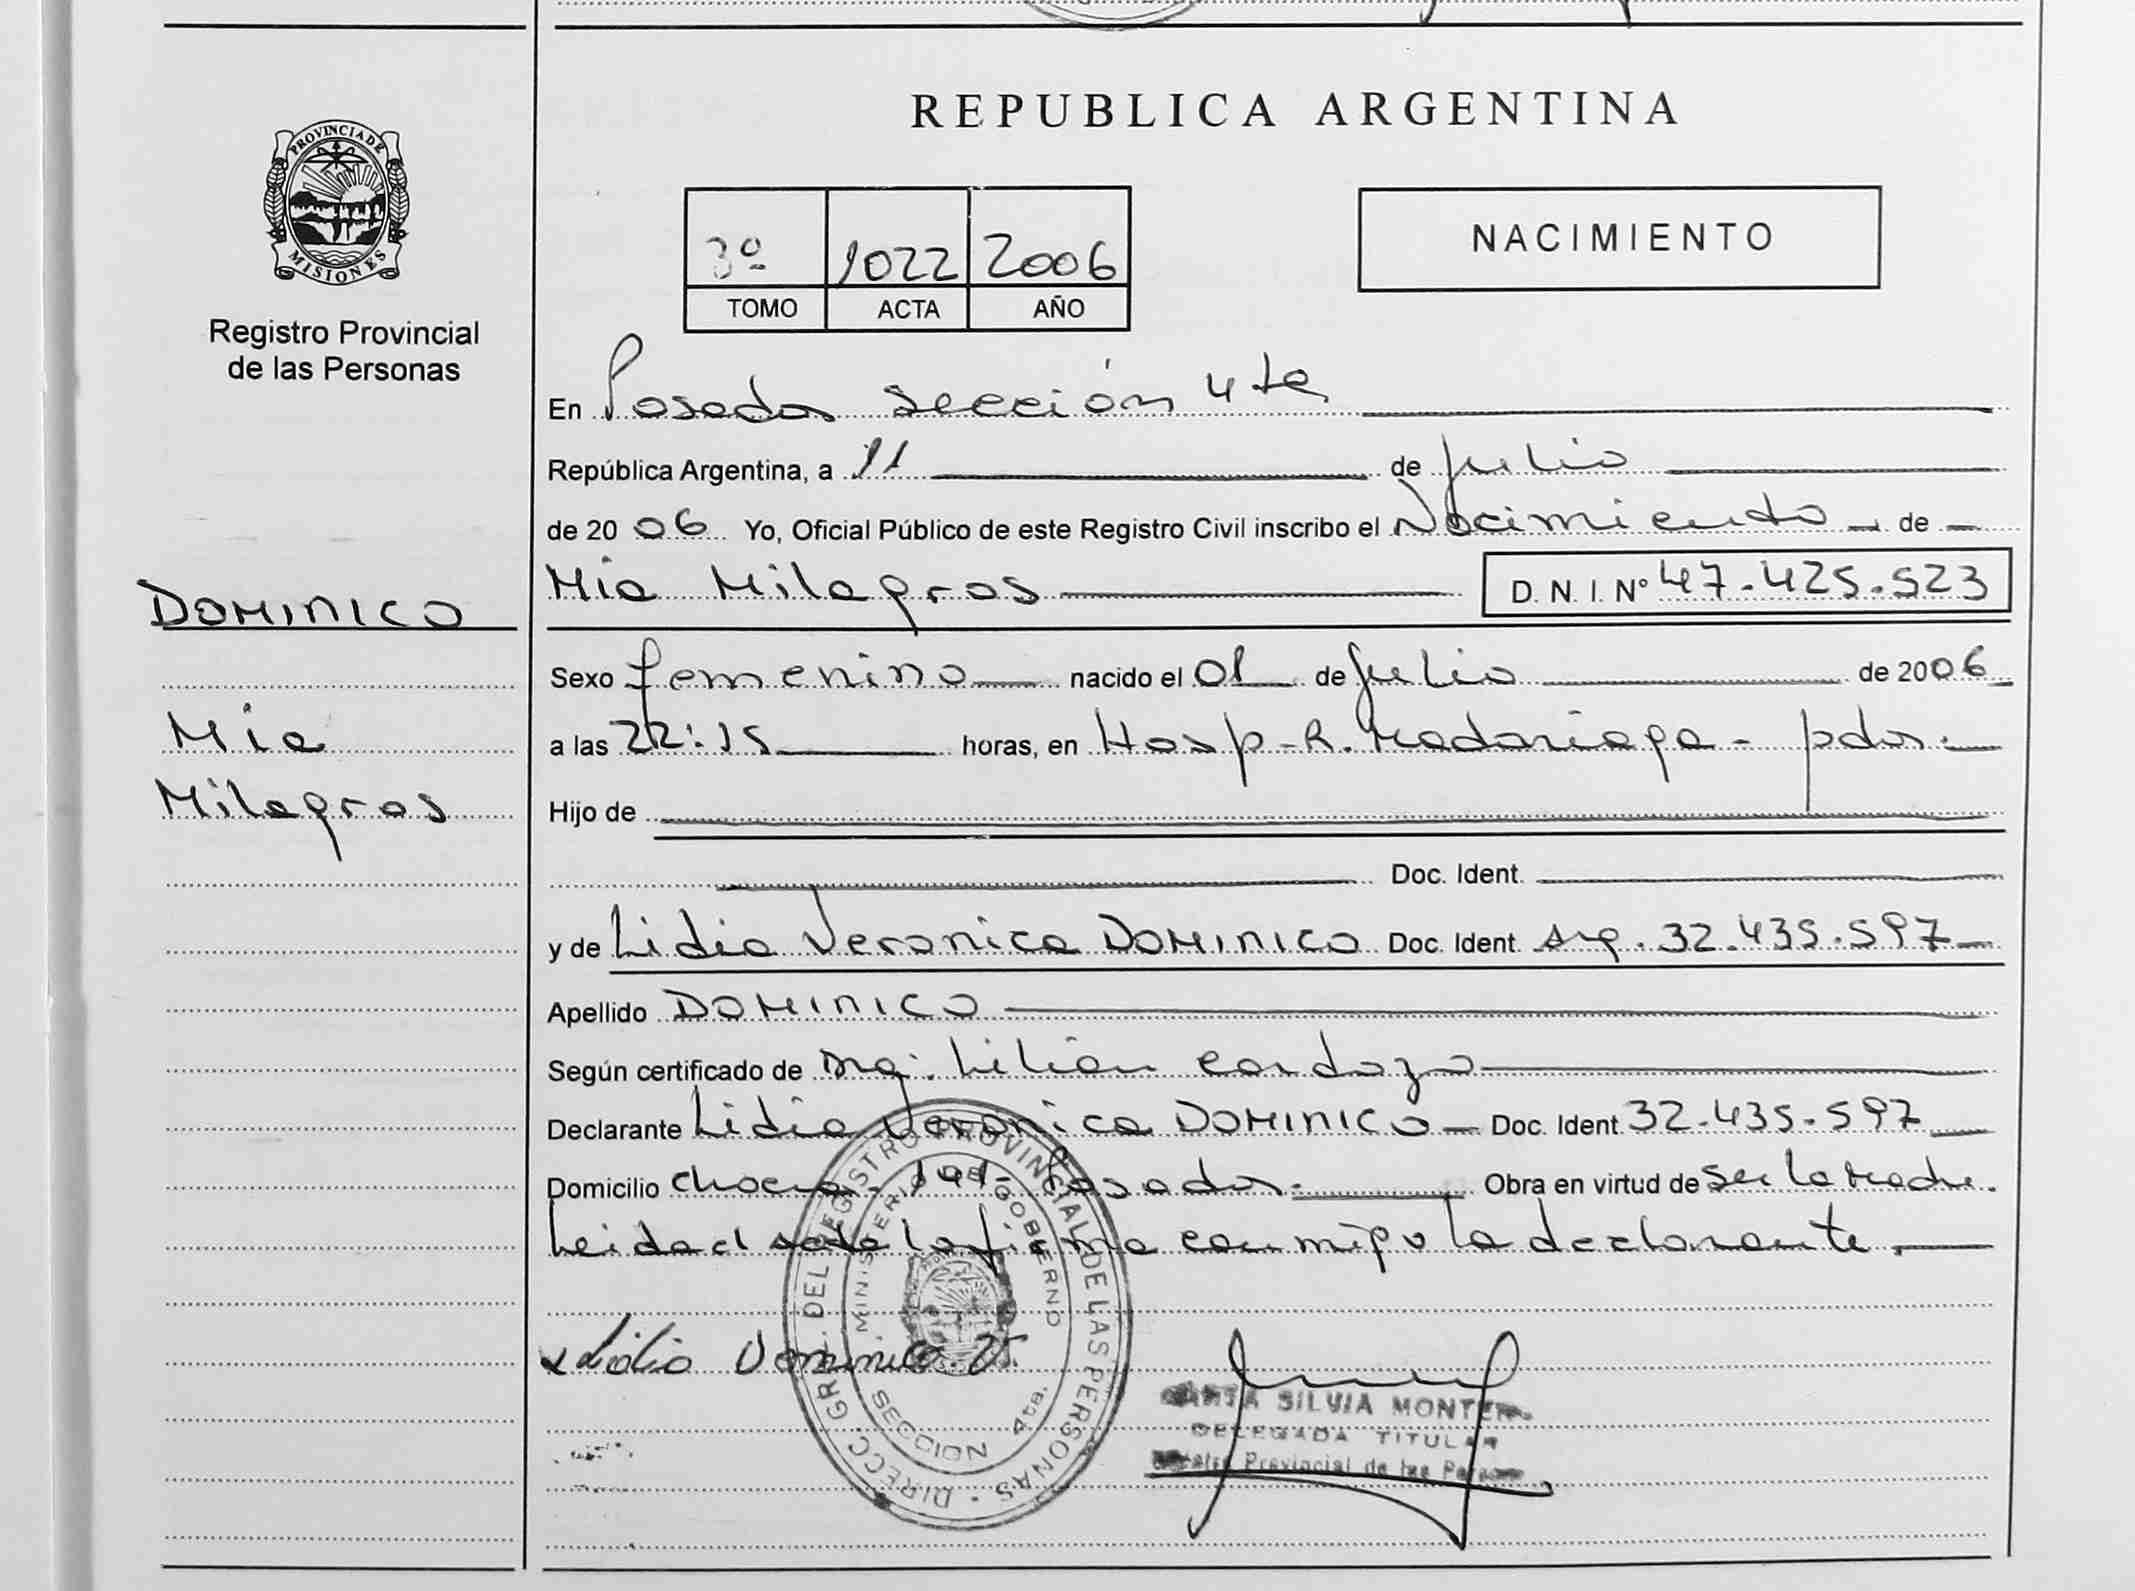 REPUBLICA ARGENTINA
PROVINCIA DE MISIONES
Registro Provincial
de las Personas
NACIMIENTO
3º 1022 2006
TOMO ACTA AÑO
En Posadas sección 4ta
República Argentina, a 11 de Julio
de 2006 Yo, Oficial Público de este Registro Civil inscribo el Nacimiento de
DOMINICO
Mia
Milagros
Mia Milagros D. N. I. Nº 47.425.523
Sexo femenino nacido el 01 de Julio de 2006
a las 22:15 horas, en Hosp. R. Madariaga - pdas.
Hijo de
Doc. Ident.
y de Lidia Veronica DOMINICO Doc. Ident. Arg. 32.435.597
Apellido DOMINICO
Según certificado de Lilian Cardozo
Declarante Lidia Veronica DOMINICO Doc. Ident. 32.435.597
Domicilio Posadas. Obra en virtud de ser la Madre.
Leida el acta la firma conmigo la declarante.
Lidia Dominico V.
DIRECC. GRAL. DEL REGISTRO PROVINCIAL DE LAS PERSONAS
MINISTERIO DE GOBIERNO
SECCION 4ta.
SILVIA
DELEGADA TITULAR
Provincial de las